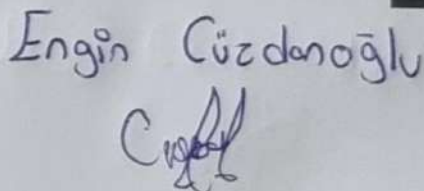 Engin Cüzdanoğlu